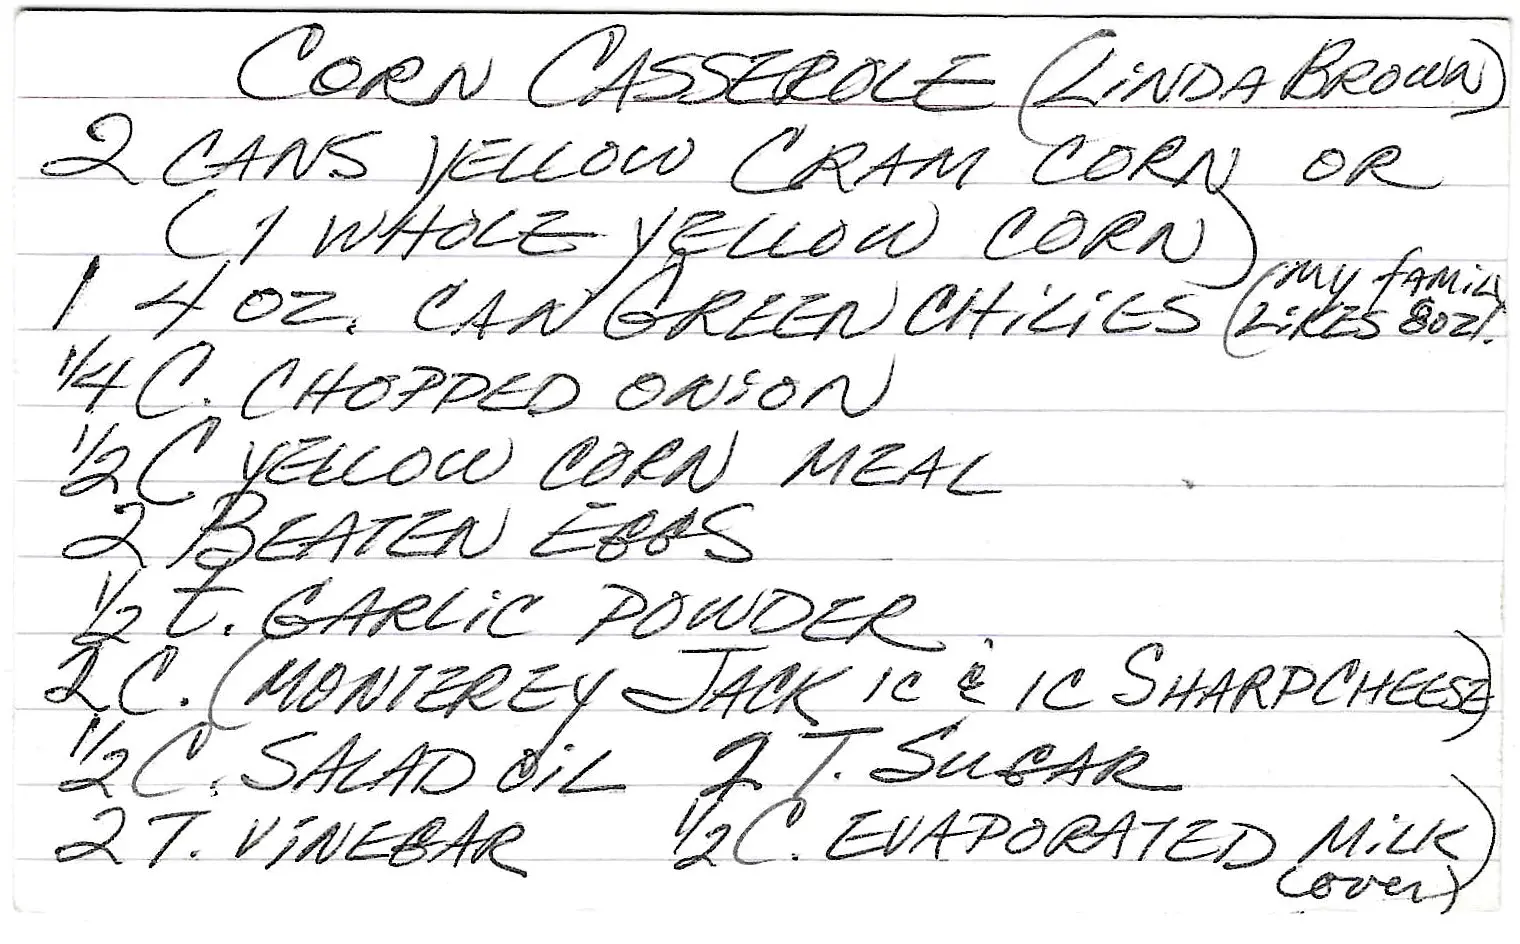 CORN CASSEROLE (LINDA BROWN)
2 CANS YELLOW CRAM CORN OR
(1 WHOLE YELLOW CORN)
1 4 OZ. CAN GREEN CHILIES (MY FAMILY
LIKES 8OZ!.
1/4 C. CHOPPED ONION
1/2 C YELLOW CORN MEAL
2 BEATEN EGGS
1/2 t. GARLIC POWDER
2 C. (MONTEREY JACK 1C & 1C SHARP CHEESE)
1/2 C. SALAD OIL 2 T. SUGAR
2 T. VINEGAR 1/2 C. EVAPORATED MILK)
(over)